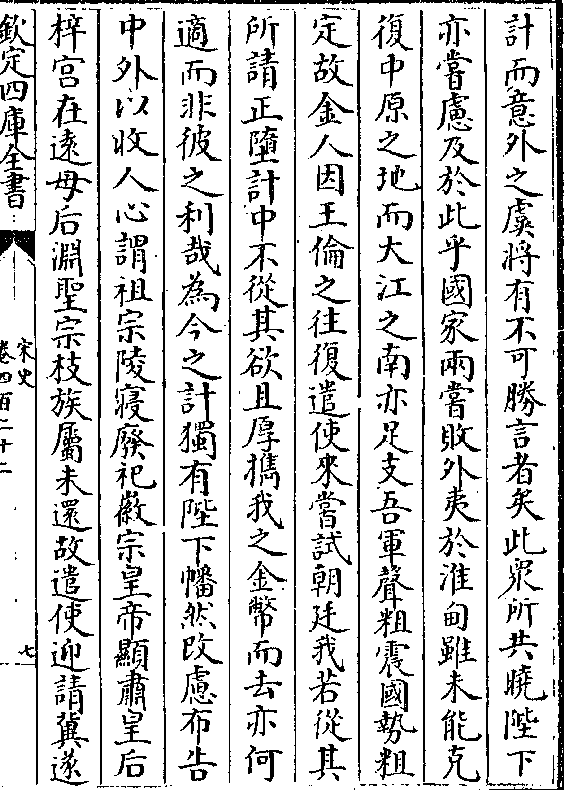 計而意外之虞將有不可勝言者矣此衆所共曉陛下
亦嘗慮及於此乎國家兩嘗敗外夷於淮甸雖未能克
復中原之地而大江之南亦足支吾軍聲粗震國勢粗
定故金人因王倫之往復遣使來嘗試朝廷我若從其
所請正墮計中不從其欲且厚攜我之金幣而去亦何
適而非彼之利哉為今之計獨有陛下幡然改慮布告
中外以收人心謂祖宗陵寢廢祀徽宗皇帝顯肅皇后
梓宮在遠母后淵聖宗枝族屬未還故遣使迎請冀遂
欽定四庫全書
宋史
卷四百二十二
七